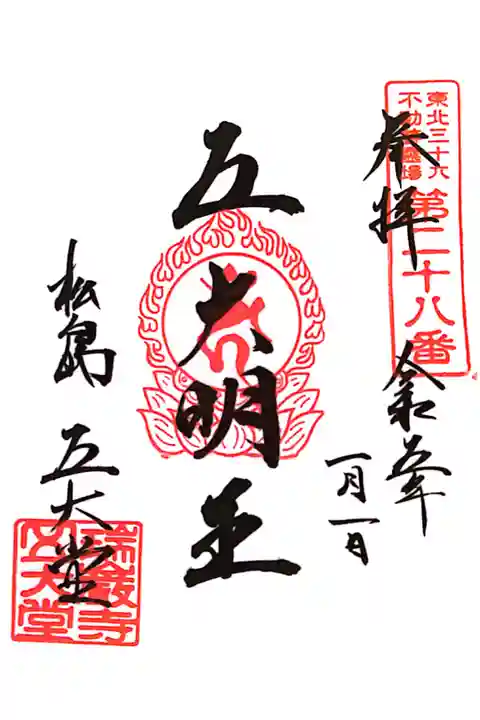 東北三十六
不動尊霊場
第二十八番
奉拝
令和五年
一月一日
五大明王
松島 五大堂
瑞巌寺
五大堂